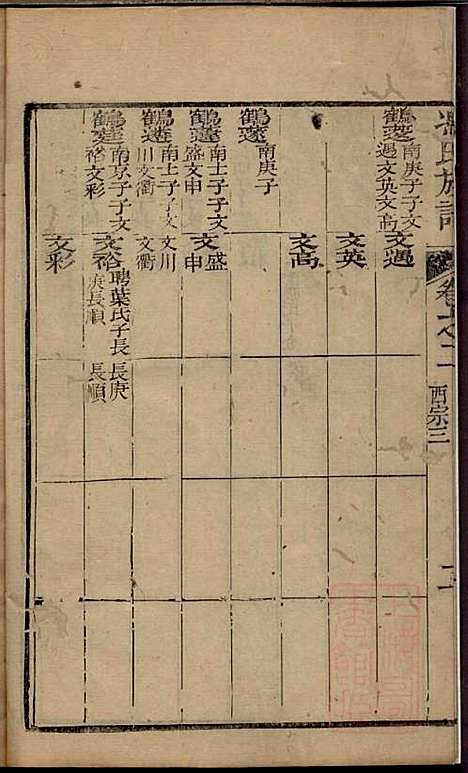 馮氏族譜
卷之二
西宗三
二
鶴菱 南庚子子文過文英文高
文過
文英
文高
鶴蓬 南庚子
鶴蓬 南士子子文盛文申
文盛 文申
南士子子文川文衢
文川 文衢
南京子子文裕文彩
文裕 聘葉氏子長庚長順
長庚 長順
文彩